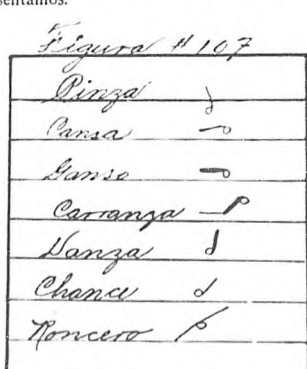 sentamos.
Figura # 107
Pinza
Cansa
Ganso
Carranza
Danza
Chance
Roncero